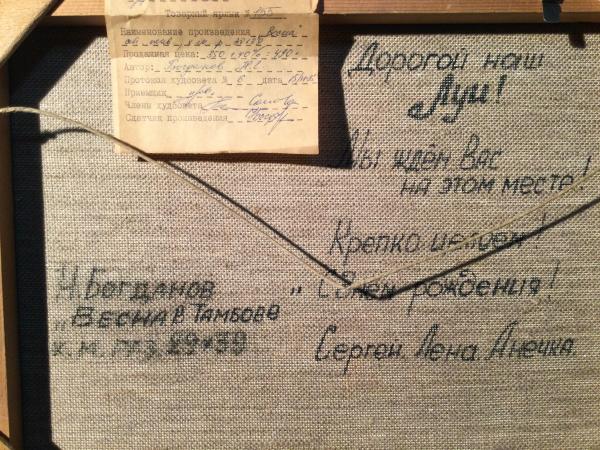 Товарный ярлык № 155
Наименование произведения
Продажная цена: 350 + 40%
Автор: Богданов
Протокол худсовета № 6 дата
Приемщик
Члены худсовета
Сдатчик произведения
Дорогой наш
Луи!
Мы ждём Вас
на этом месте!
Крепко целуем!
„С Днем рождения!
Сергей. Лена. Анечка.
Ч. Богданов
„Весна в Тамбове
х. м. 29×39